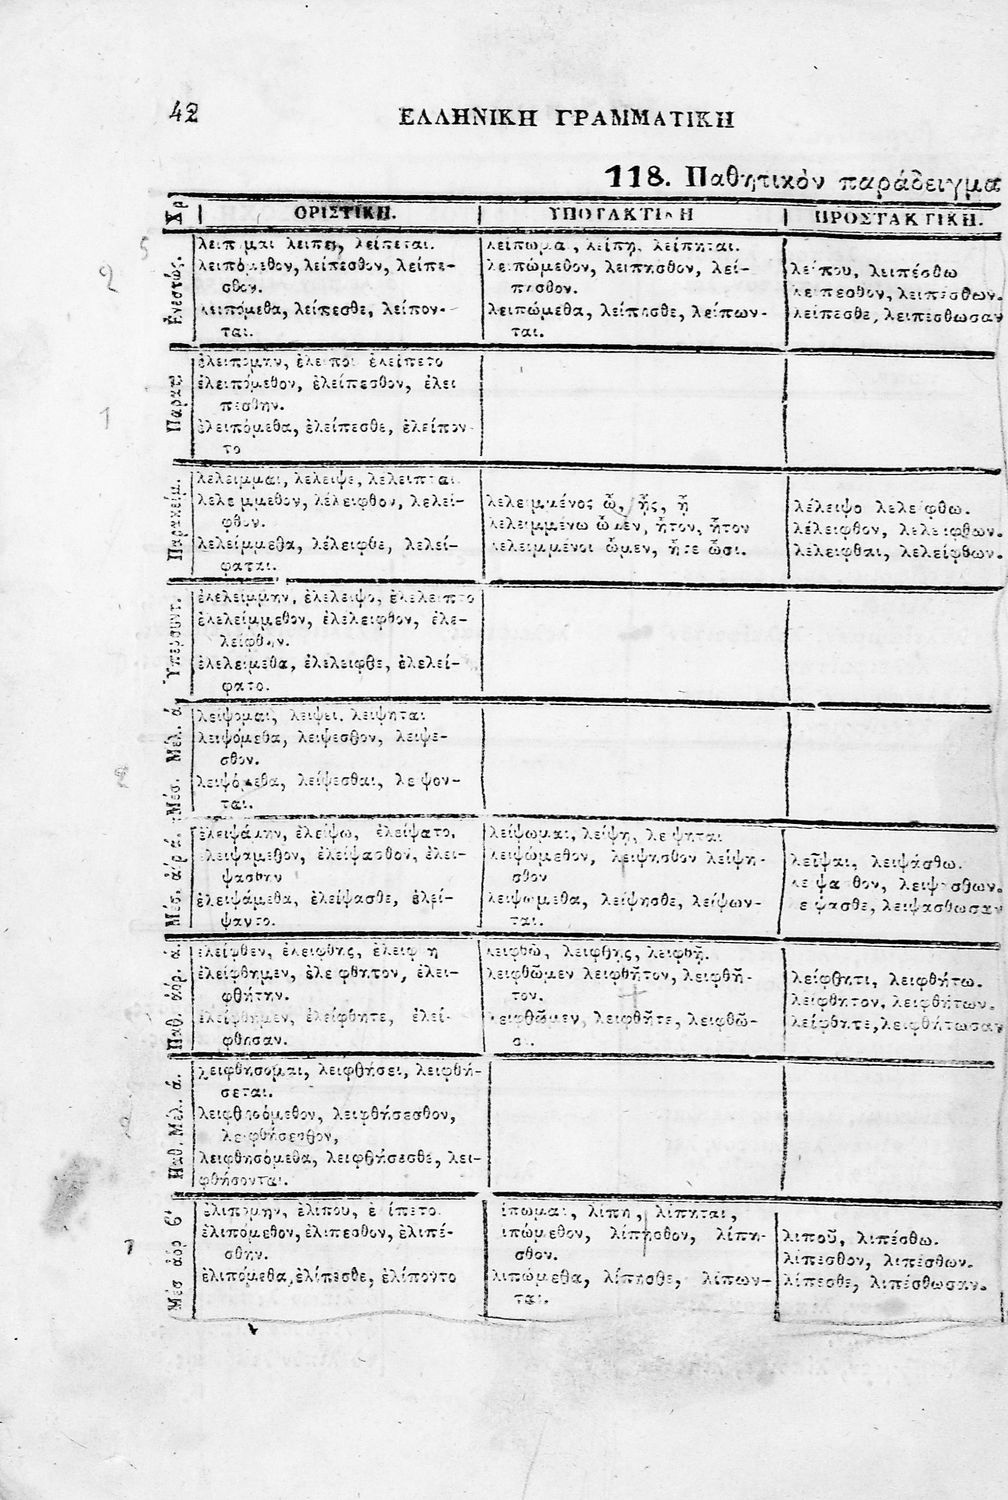 42
ΕΛΛΗΝΙΚΗ ΓΡΑΜΜΑΤΙΚΗ
118. Παθητικὸν παράδειγμα
Χρ
ΟΡΙΣΤΙΚΗ.
ΥΠΟΤΑΚΤΙΚΗ
ΠΡΟΣΤΑΚΤΙΚΗ.
Ἐνεστώς.
λείπομαι λείπει, λείπεται.
λειπόμεθον, λείπεσθον, λείπε-
σθον.
λειπόμεθα, λείπεσθε, λείπον-
ται.
λείπωμα, λείπῃ, λείπηται.
λειπώμεθον, λείπησθον, λεί-
πησθον.
λειπώμεθα, λείπησθε, λείπων-
ται.
λείπου, λειπέσθω
λείπεσθον, λειπέσθων.
λείπεσθε, λειπέσθωσαν
Παρατ.
ἐλειπόμην, ἐλείπου ἐλείπετο
ἐλειπόμεθον, ἐλείπεσθον, ἐλει
πέσθην.
ἐλειπόμεθα, ἐλείπεσθε, ἐλείπον-
το
Παρακείμ.
λέλειμμαι, λέλειψε, λέλειπται
λελείμμεθον, λέλειφθον, λελεί-
φθον.
λελείμμεθα, λέλειφθε, λελεί-
φαται.
λελειμμένος ὦ, ᾖς, ᾖ
λελειμμένω ὦμεν, ἦτον, ἦτον
λελειμμένοι ὦμεν, ἦτε ὦσι.
λέλειψο λελείφθω.
λέλειφθον, λελείφθων.
λέλειφθαι, λελείφθων.
Ὑπερσυντ.
ἐλελείμμην, ἐλέλειψο, ἐλέλειπτο
ἐλελείμμεθον, ἐλέλειφθον, ἐλε-
λείφθην.
ἐλελείμεθα, ἐλέλειφθε, ἐλελεί-
φατο.
Μέσ. Μέλ. ά.
λείψομαι, λείψει, λείψηται
λειψόμεθα, λείψεσθον, λείψε-
σθον.
λειψόμεθα, λείψεσθαι, λείψον-
ται.
Μέσ. ἀόρ ά.
ἐλειψάμην, ἐλείψω, ἐλείψατο.
ἐλειψάμεθον, ἐλείψασθον, ἐλει-
ψάσθην
ἐλειψάμεθα, ἐλείψασθε, ἐλεί-
ψαντο.
λείψωμαι, λείψῃ, λείψηται
λειψώμεθον, λείψησθον λείψη-
σθον
λειψώμεθα, λείψησθε, λείψων-
ται.
λεῖψαι, λειψάσθω.
λείψασθον, λειψάσθων.
λείψασθε, λειψάσθωσαν
Παθ. ἀόρ. ά.
ἐλείφθεν, ἐλείφθης, ἐλείφθη
ἐλείφθημεν, ἐλείφθητον, ἐλει-
φθήτην.
ἐλείφθημεν, ἐλείφθητε, ἐλεί-
φθησαν.
λειφθῶ, λειφθῇς, λειφθῇ.
λειφθῶμεν λειφθῆτον, λειφθῆ-
τον.
λειφθῶμεν, λειφθῆτε, λειφθῶ-
σι.
λείφθητι, λειφθήτω.
λείφθητον, λειφθήτων.
λείφθητε, λειφθήτωσαν
Παθ. Μέλ. ά.
λειφθήσομαι, λειφθήσει, λειφθή-
σεται.
λειφθησόμεθον, λειφθήσεσθον,
λειφθήσεσθον,
λειφθησόμεθα, λειφθήσεσθε, λει-
φθήσονται.
Μέσ ἀόρ β'
ἐλιπόμην, ἐλίπου, ἐλίπετο.
ἐλιπόμεθον, ἐλίπεσθον, ἐλιπέ-
σθην.
ἐλιπόμεθα, ἐλίπεσθε, ἐλίποντο
ίπωμαι, λίπῃ, λίπηται,
ιπώμεθον, λίπησθον, λίπη-
σθον.
λιπώμεθα, λίπησθε, λίπων-
ται.
λιποῦ, λιπέσθω.
λίπεσθον, λιπέσθων.
λίπεσθε, λιπέσθωσαν.